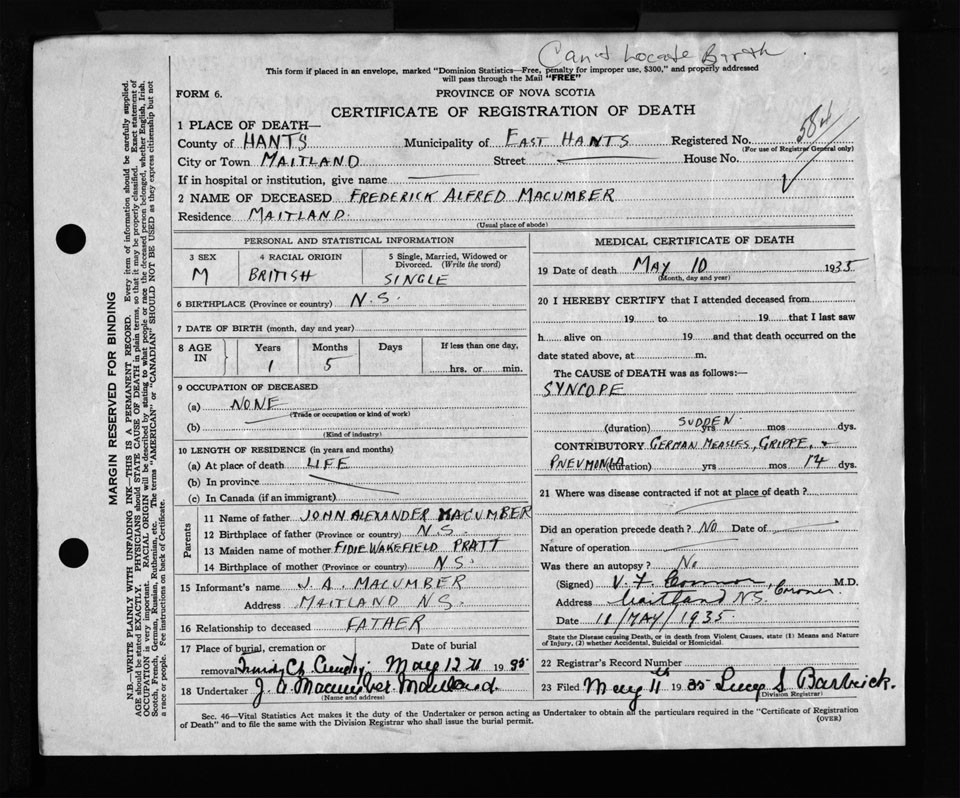 Can't Locate Birth
This form if placed in an envelope, marked "Dominion Statistics—Free, penalty for improper use, $300," and properly addressed
will pass through the Mail "FREE"
FORM 6. PROVINCE OF NOVA SCOTIA
CERTIFICATE OF REGISTRATION OF DEATH
584
1 PLACE OF DEATH—
County of HANTS Municipality of EAST HANTS Registered No.
(For use of Registrar General only)
City or Town MAITLAND Street House No.
If in hospital or institution, give name
2 NAME OF DECEASED FREDERICK ALFRED MACUMBER
Residence MAITLAND.
(Usual place of abode)
PERSONAL AND STATISTICAL INFORMATION
3 SEX 4 RACIAL ORIGIN 5 Single, Married, Widowed or
Divorced. (Write the word)
M BRITISH SINGLE
6 BIRTHPLACE (Province or country) N.S.
7 DATE OF BIRTH (month, day and year)
8 AGE IN Years Months Days If less than one day,
1 5 hrs. or min.
9 OCCUPATION OF DECEASED
(a) NONE
(Trade or occupation or kind of work)
(b)
(Kind of industry)
10 LENGTH OF RESIDENCE (in years and months)
(a) At place of death LIFE
(b) In province
(c) In Canada (if an immigrant)
Parents
11 Name of father JOHN ALEXANDER MACUMBER
12 Birthplace of father (Province or country) N.S.
13 Maiden name of mother WAKEFIELD PRATT
14 Birthplace of mother (Province or country) N.S.
15 Informant's name J. A. MACUMBER
Address MAITLAND N.S.
16 Relationship to deceased FATHER
17 Place of burial, cremation or Date of burial
removal May 12 1935
18 Undertaker J. A. Macumber Maitland.
(Name and address)
MEDICAL CERTIFICATE OF DEATH
19 Date of death MAY 10 1935
(Month, day and year)
20 I HEREBY CERTIFY that I attended deceased from
19 to 19 that I last saw
h alive on 19 and that death occurred on the
date stated above, at m.
The CAUSE of DEATH was as follows:—
SYNCOPE
SUDDEN.
(duration) yrs mos dys.
CONTRIBUTORY GERMAN MEASLES, GRIPPE, &
PNEUMONIA (duration) yrs mos 14 dys.
21 Where was disease contracted if not at place of death?
Did an operation precede death? NO Date of
Nature of operation
Was there an autopsy? No
(Signed) Connor, M.D.
Coroner.
Address Maitland N.S.
Date 11/MAY/1935
State the Disease causing Death, or in death from Violent Causes, state (1) Means and Nature
of Injury, (2) whether Accidental, Suicidal or Homicidal.
22 Registrar's Record Number
23 Filed May 11th 1935 Barbrick.
(Division Registrar)
Sec. 46—Vital Statistics Act makes it the duty of the Undertaker or person acting as Undertaker to obtain all the particulars required in the "Certificate of Registration
of Death" and to file the same with the Division Registrar who shall issue the burial permit. (OVER)
MARGIN RESERVED FOR BINDING
N.B.—WRITE PLAINLY WITH UNFADING INK—THIS IS A PERMANENT RECORD. Every item of information should be carefully supplied.
AGE should be stated EXACTLY. PHYSICIANS should STATE CAUSE OF DEATH in plain terms, so that it may be properly classified. Exact statement of
OCCUPATION is very important. RACIAL ORIGIN will be described by stating to what people or race the deceased person belonged, whether English, Irish,
Scotch, French, German, Russian, Ruthenian, etc. The terms "AMERICAN" or "CANADIAN" SHOULD NOT BE USED as they express citizenship but not
a race or people. Fee instructions on back of Certificate.